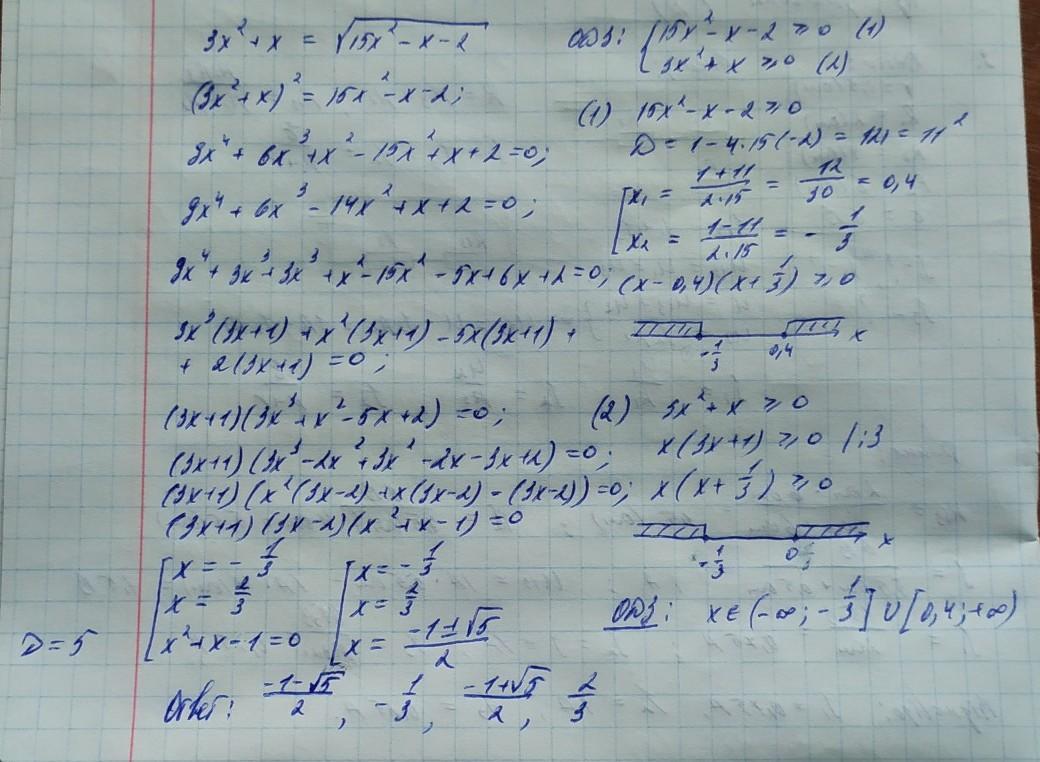 3x² + x = √(15x² - x - 2)
(3x² + x)² = 15x² - x - 2;
9x⁴ + 6x³ + x² - 15x² + x + 2 = 0;
9x⁴ + 6x³ - 14x² + x + 2 = 0;
9x⁴ + 3x³ + 3x³ + x² - 15x² - 5x + 6x + 2 = 0;
3x³(3x+1) + x²(3x+1) - 5x(3x+1) +
+ 2(3x+1) = 0;
(3x+1)(3x³ + x² - 5x + 2) = 0;
(3x+1)(3x³ - 2x² + 3x² - 2x - 3x + 2) = 0;
(3x+1)(x²(3x-2) + x(3x-2) - (3x-2)) = 0;
(3x+1)(3x-2)(x² + x - 1) = 0
[x = -1/3 [x = -1/3
x = 2/3 x = 2/3
D = 5 x² + x - 1 = 0 x = (-1±√5)/2
Ответ: (-1-√5)/2, -1/3, (-1+√5)/2, 2/3
ОДЗ: {15x² - x - 2 ≥ 0 (1)
3x² + x ≥ 0 (2)
(1) 15x² - x - 2 ≥ 0
D = 1 - 4·15(-2) = 121 = 11²
[x₁ = (1+11)/(2·15) = 12/30 = 0,4
x₂ = (1-11)/(2·15) = -1/3
(x - 0,4)(x + 1/3) ≥ 0
-1/3 0,4 x
(2) 3x² + x ≥ 0
x(3x+1) ≥ 0 |:3
x(x + 1/3) ≥ 0
-1/3 0 x
ОДЗ: x ∈ (-∞; -1/3] ∪ [0,4; +∞)